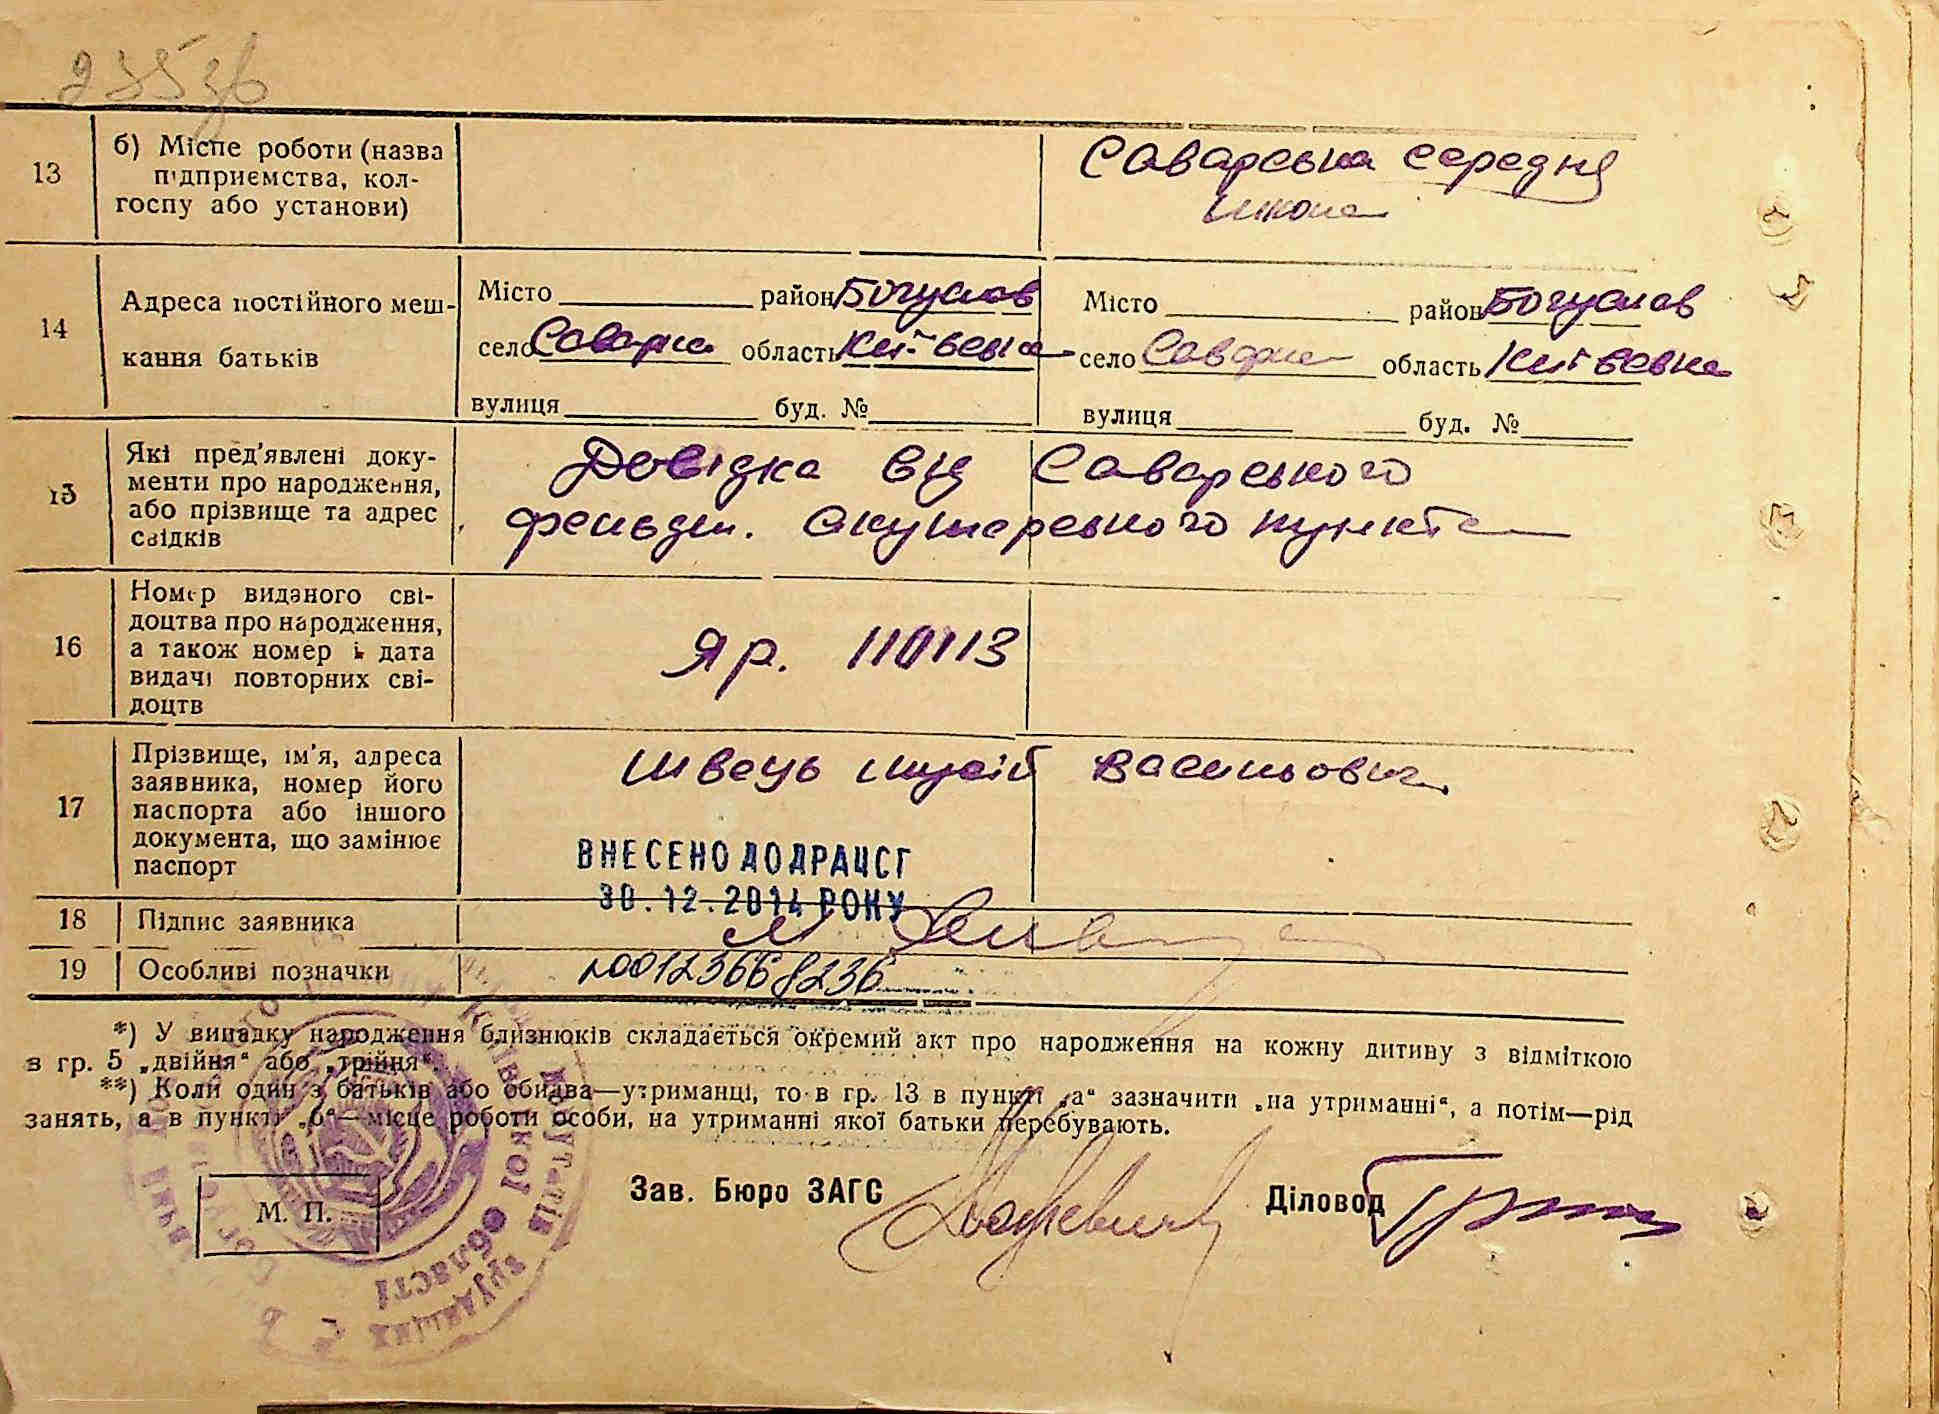 235зв
13
б) Місце роботи (назва
підприємства, кол-
госпу або установи)
Саварська середня
школа
14
Адреса постійного меш-
кання батьків
Місто район Богуслав
село Саварка область Київська
вулиця буд. №
Місто район Богуслав
село Саварка область Київська
вулиця буд. №
15
Які пред'явлені доку-
менти про народження,
або прізвище та адрес
свідків
Довідка від Саварського
фельдш. акушерського пункта
16
Номер виданого сві-
доцтва про народження,
а також номер і дата
видачі повторних сві-
доцтв
Яр. 110113
17
Прізвище, ім'я, адреса
заявника, номер його
паспорта або іншого
документа, що замінює
паспорт
Швець Мусій Васильович
ВНЕСЕНО ДО ДРАЦСГ
30.12.2014 РОКУ
18
Підпис заявника
19
Особливі позначки
№00123668236
*) У випадку народження близнюків складається окремий акт про народження на кожну дитину з відміткою
в гр. 5 „двійня" або „трійня".
**) Коли один з батьків або обидва—утриманці, то в гр. 13 в пункті „а" зазначити „на утриманні", а потім—рід
занять, а в пункті „б"—місце роботи особи, на утриманні якої батьки перебувають.
М. П.
Зав. Бюро ЗАГС
Діловод
депутатів трудящих
Київської області